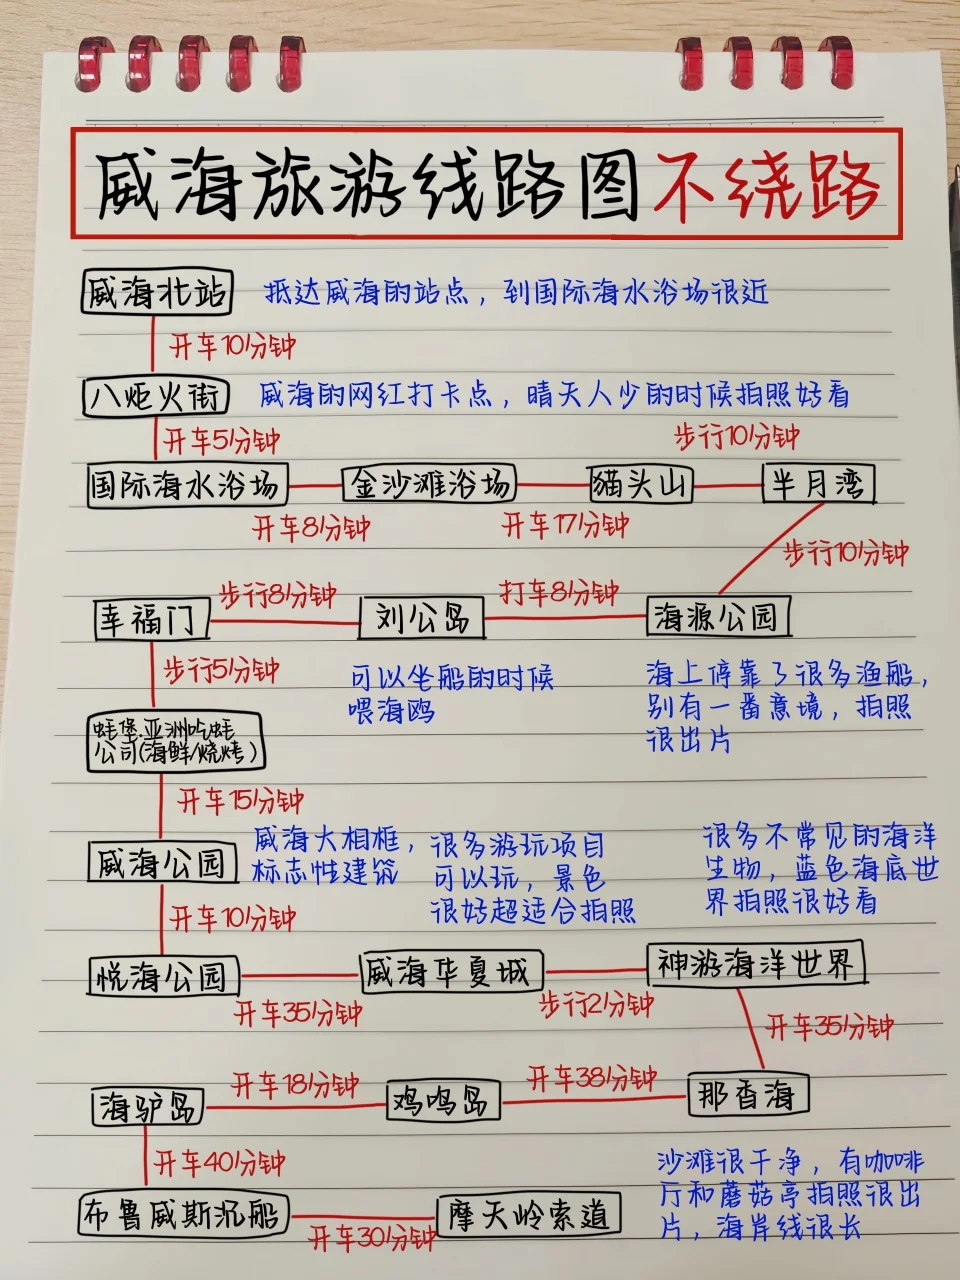 威海旅游线路图不绕路
威海北站
抵达威海的站点，到国际海水浴场很近
开车10分钟
八炬火街
威海的网红打卡点，晴天人少的时候拍照好看
开车5分钟
步行10分钟
国际海水浴场
金沙滩浴场
猫头山
半月湾
开车8分钟
开车17分钟
步行10分钟
幸福门
步行8分钟
刘公岛
打车8分钟
海源公园
步行5分钟
可以坐船的时候
喂海鸥
海上停靠了很多渔船，
别有一番意境，拍照
很出片
蚝堡.亚洲吃蚝
公司(海鲜/烧烤)
开车15分钟
威海公园
威海大相框，
标志性建筑
很多游玩项目
可以玩，景色
很好超适合拍照
很多不常见的海洋
生物，蓝色海底世
界拍照很好看
开车10分钟
悦海公园
威海华夏城
神游海洋世界
开车35分钟
步行2分钟
开车35分钟
海驴岛
开车18分钟
鸡鸣岛
开车38分钟
那香海
开车40分钟
沙滩很干净，有咖啡
厅和蘑菇亭拍照很出
片，海岸线很长
布鲁威斯沉船
开车30分钟
摩天岭索道